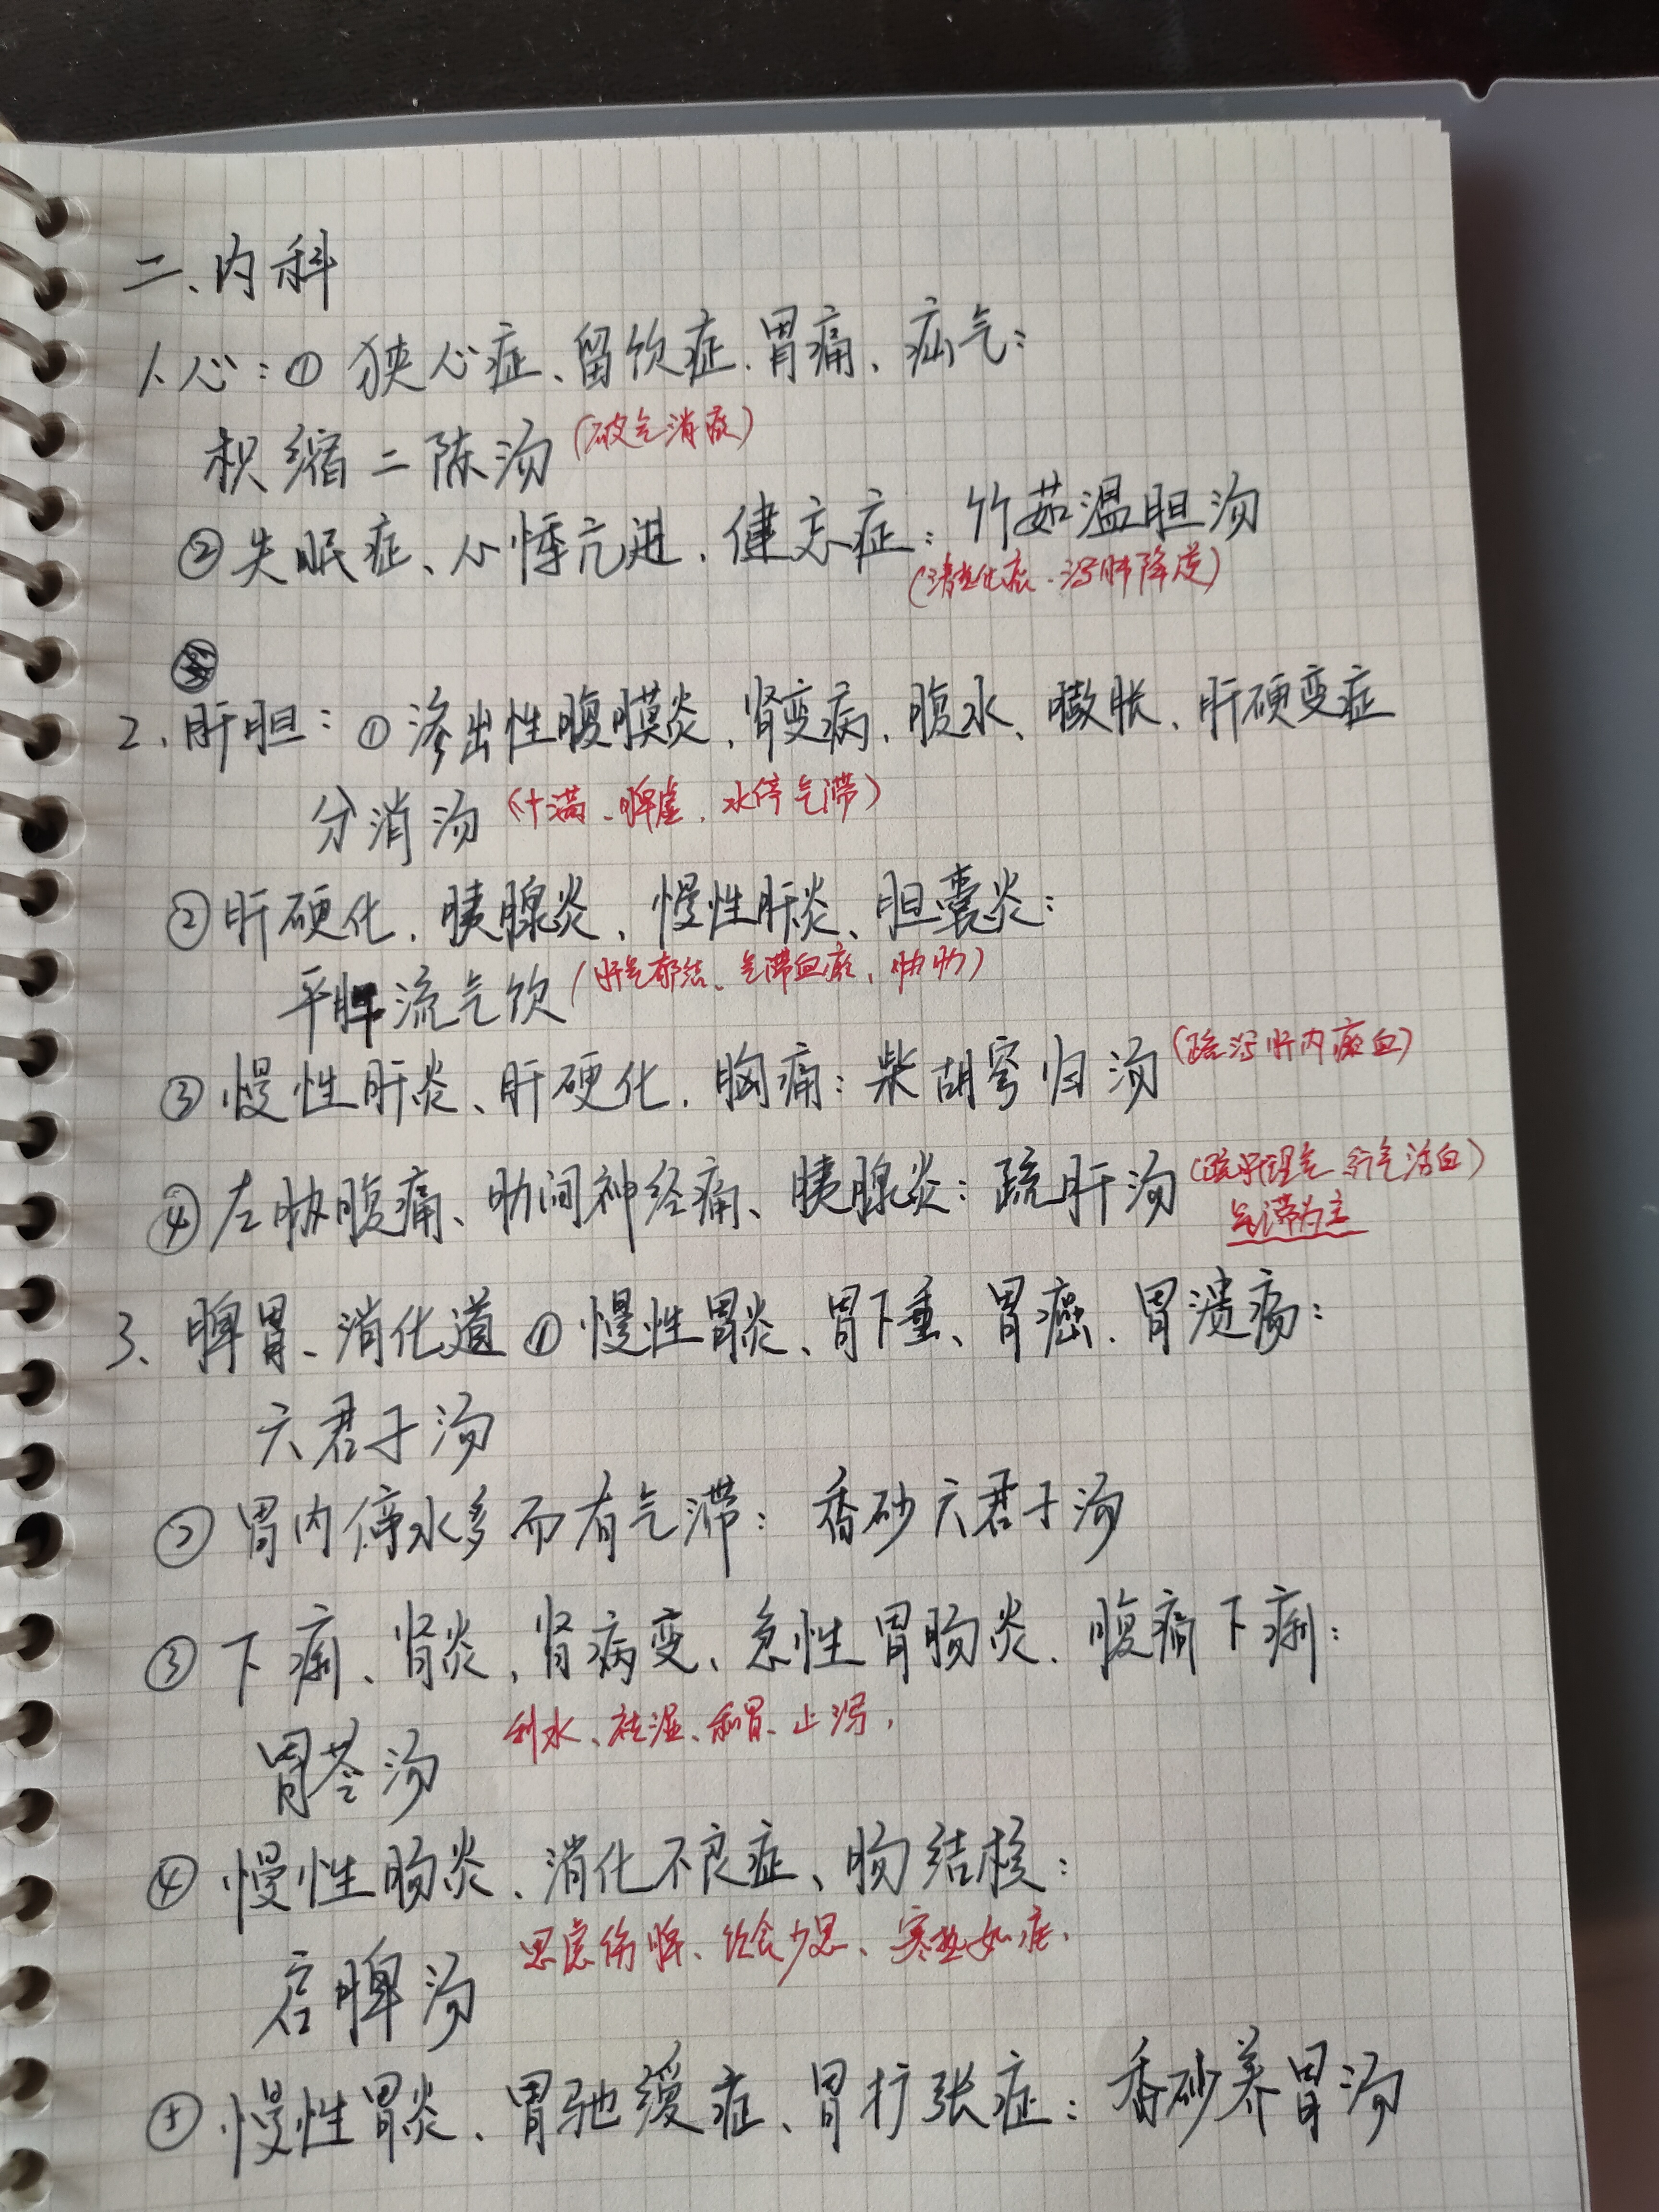 二、内科
1、心：① 狭心症、留饮症、胃痛、疝气：
枳缩二陈汤（破气消痰）
②失眠症、心悸亢进、健忘症：竹茹温胆汤
（清热化痰、泻肺降逆）
2、肝胆：①渗出性腹膜炎、肾变病、腹水、臌胀、肝硬变症
分消汤（中满、脾虚、水停气滞）
②肝硬化、胰腺炎、慢性肝炎、胆囊炎：
平肝流气饮（肝气郁结、气滞血瘀、胁肋）
③慢性肝炎、肝硬化、胸痛：柴胡芎归汤（疏泻肝内瘀血）
④左胁腹痛、肋间神经痛、胰腺炎：疏肝汤（疏肝理气、行气活血）
气滞为主
3、脾胃、消化道 ①慢性胃炎、胃下垂、胃癌、胃溃疡：
六君子汤
②胃内停水多而有气滞：香砂六君子汤
③下痢、肾炎、肾病变、急性胃肠炎、腹痛下痢：
胃苓汤 利水、祛湿、和胃、止泻，
④慢性肠炎、消化不良症、肠结核：
启脾汤 思虑伤脾、饮食少思、寒热如疟、
⑤慢性胃炎、胃驰缓症、胃扩张症：香砂养胃汤